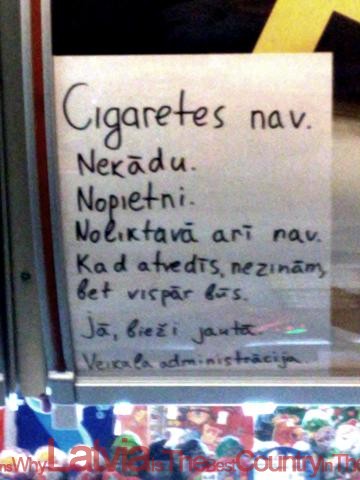 Cigaretes nav.
Nekādu.
Nopietni.
Noliktavā arī nav.
Kad atvedīs, nezinām,
bet vispār būs.
Jā, bieži jautā.
Veikala administrācija
nsWhy Latvia Is TheBest Country In The